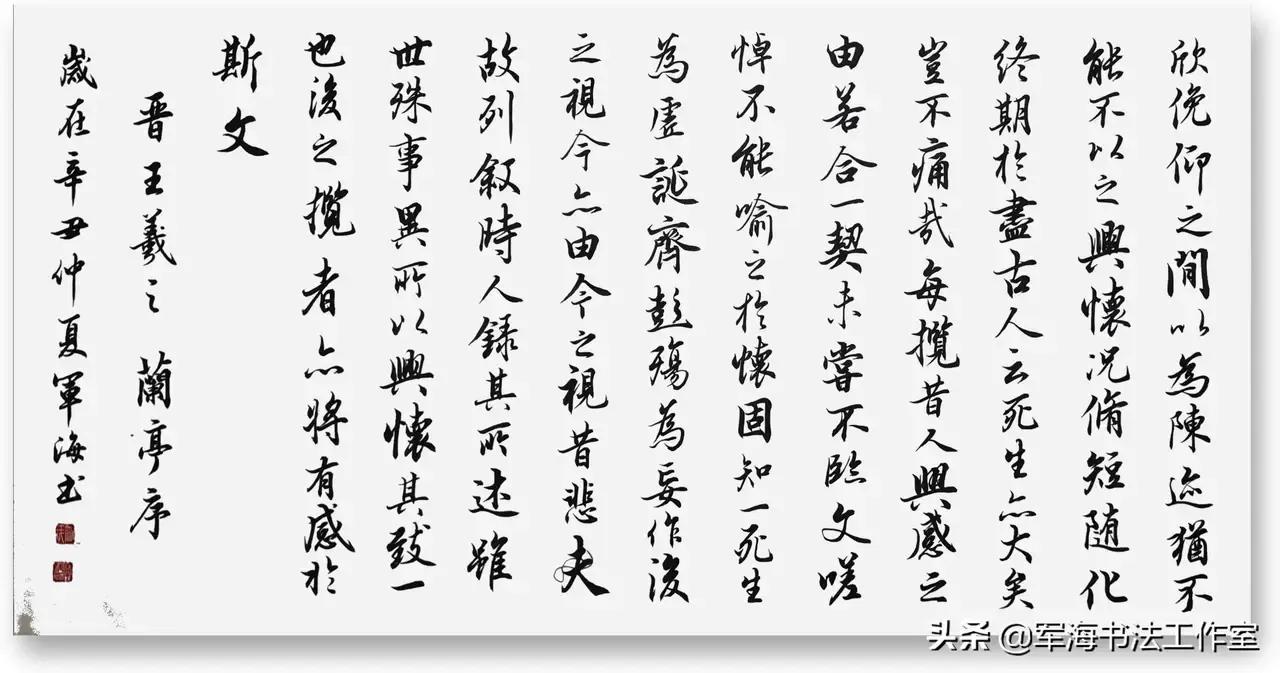 欣俛仰之間以為陳迹猶不
能不以之興懷況脩短随化
終期於盡古人云死生亦大矣
豈不痛哉每攬昔人興感之
由若合一契未嘗不臨文嗟
悼不能喻之於懷固知一死生
為虛誕齊彭殤為妄作後
之視今亦由今之視昔悲夫
故列叙時人録其所述雖
世殊事異所以興懷其致一
也後之攬者亦將有感於
斯文
晋王羲之 蘭亭序
歲在辛丑仲夏軍海书
头条 @军海书法工作室